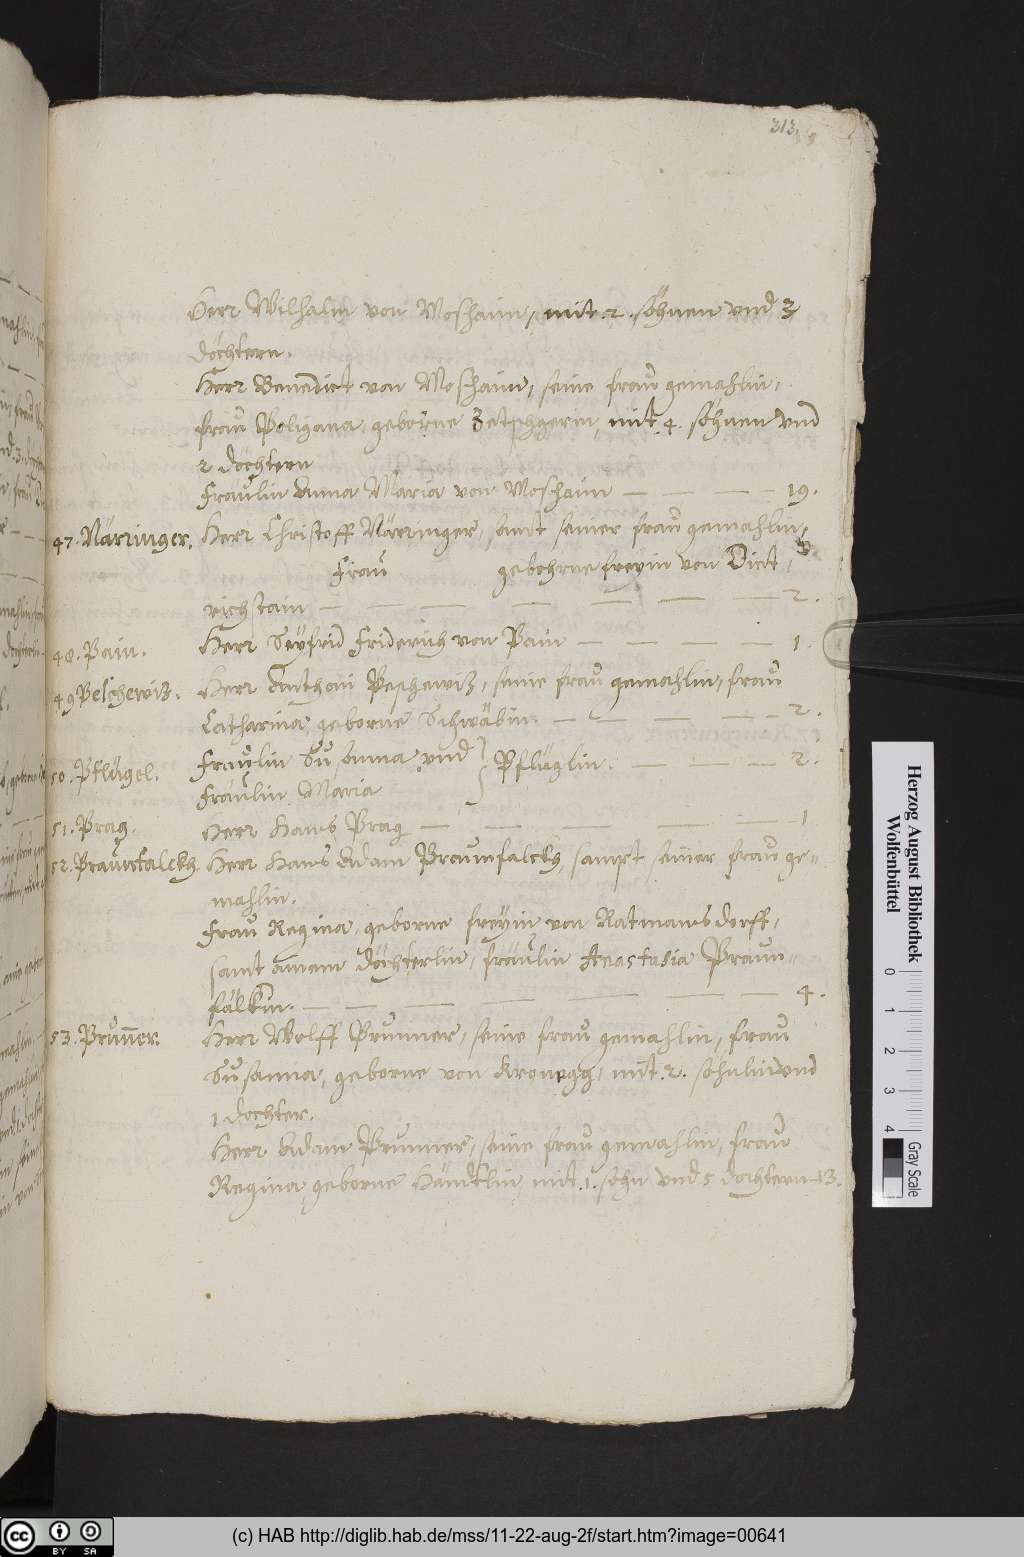 313.
Herr Wilhalm von Moshaim, mit 2. söhnen vnd 3
döchtern.
Herr Benedict von Moshaim, seine fraŭ gemahlin,
fraŭ Poligana geborne mit 4. söhnen vnd
2 döchtern
Fräulin Anna Maria von Moshaim — — — — 19.
47. Närringer. Herr Christoff Närringer, samt seiner fraŭ gemahlin,
Fraŭ gebohrne freyin von Diet,
richstain — — — — — — — 2.
48. Pain. Herr Seÿfrid Friderich von Pain — — — — 1.
49 Pelchewiz. Herr Anthoni seine fraŭ gemahlin, fraŭ
Catharina, geborne Schwäbin. — — — — — 2.
50. Pflŭgel. Fräulin Susanna vnd } Pflŭglin. — — — 2.
Fräulin Maria
51. Prag. Herr Hans Prag — — — — — 1
52. Praŭnfalckh. Herr Hans Adam Braunfalckh, sampt seiner fraŭ ge=
mahlin.
Fraŭ Regina, geborne freÿin von Ratmansdorff,
samt ainem döchterlin, fräulin Anastasia Praun=
fälkin. — — — — — — — 4.
53. Prŭnner. Herr Wolff Prunner, seine fraŭ gemahlin, fraŭ
Sŭsanna, geborne von Kronegg, mit 2. söhnlin vnd
1 dochter.
Herr Adam Prunner, seine fraŭ gemahlin, fraŭ
Regina geborne mit 1. sohn vnd 5 dochtern 13.
Herzog August Bibliothek
Wolfenbüttel
0 1 2 3 4
Gray Scale
cc BY SA
(c) HAB http://diglib.hab.de/mss/11-22-aug-2f/start.htm?image=00641